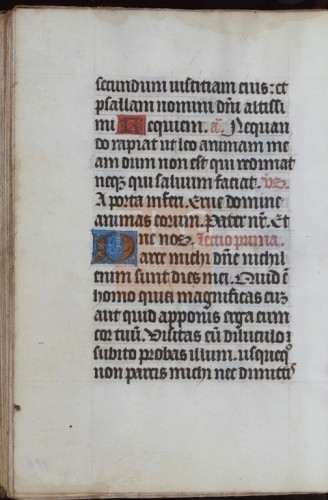 secundum iustitiam eius: et
psallam nomini dñi altissi
mi Requiem. añ. Nequan
do rapiat ut leo animam me
am dum non est qui redimat
neqz qui saluum faciat. vs.
A porta inferi. Erue domine
animas eorum. Pater nr̄. Et
ne nos. Lectio prima.
Parce michi dñe nichil
enim sunt dies mei. Quid ē
homo quia magnificas eum
aut quid apponis erga eum
cor tuū. Visitas eū diluculo ⁊
subito probas illum. usqueqͦ
non parcis michi nec dimittis